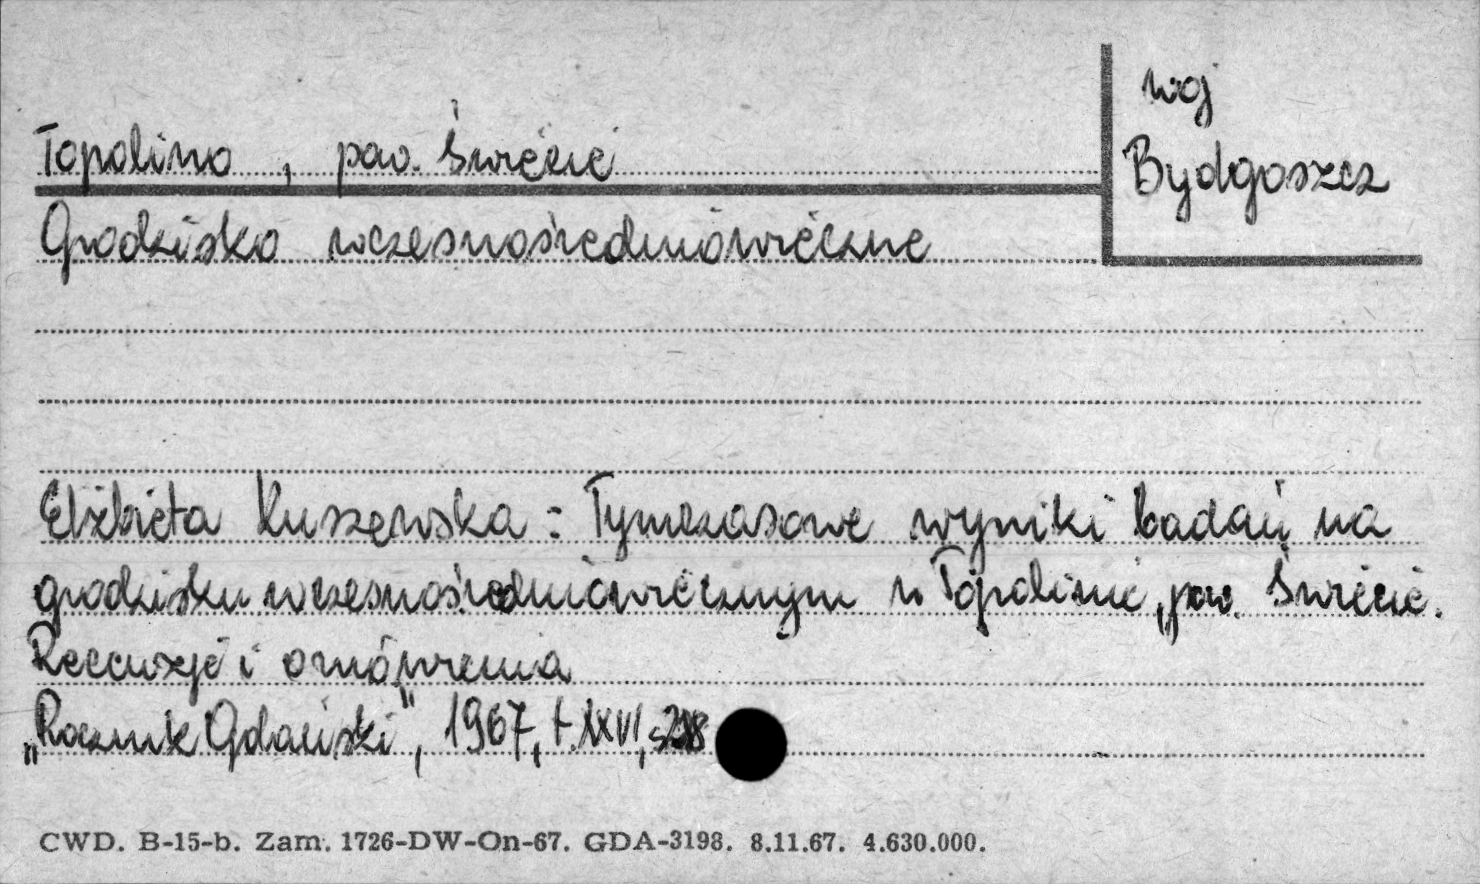 woj
Bydgoszcz
Topolino, pow. Świecie
Grodzisko wczesnośredniowieczne
Elżbieta Kuszewska: Tymczasowe wyniki badań na
grodzisku wczesnośredniowiecznym w Topolinie, pow. Świecie.
Recenzje i omówienia
„Rocznik Gdański", 1967, t. XXVI, s.
CWD. B-15-b. Zam. 1726-DW-On-67. GDA-3198. 8.11.67. 4.630.000.